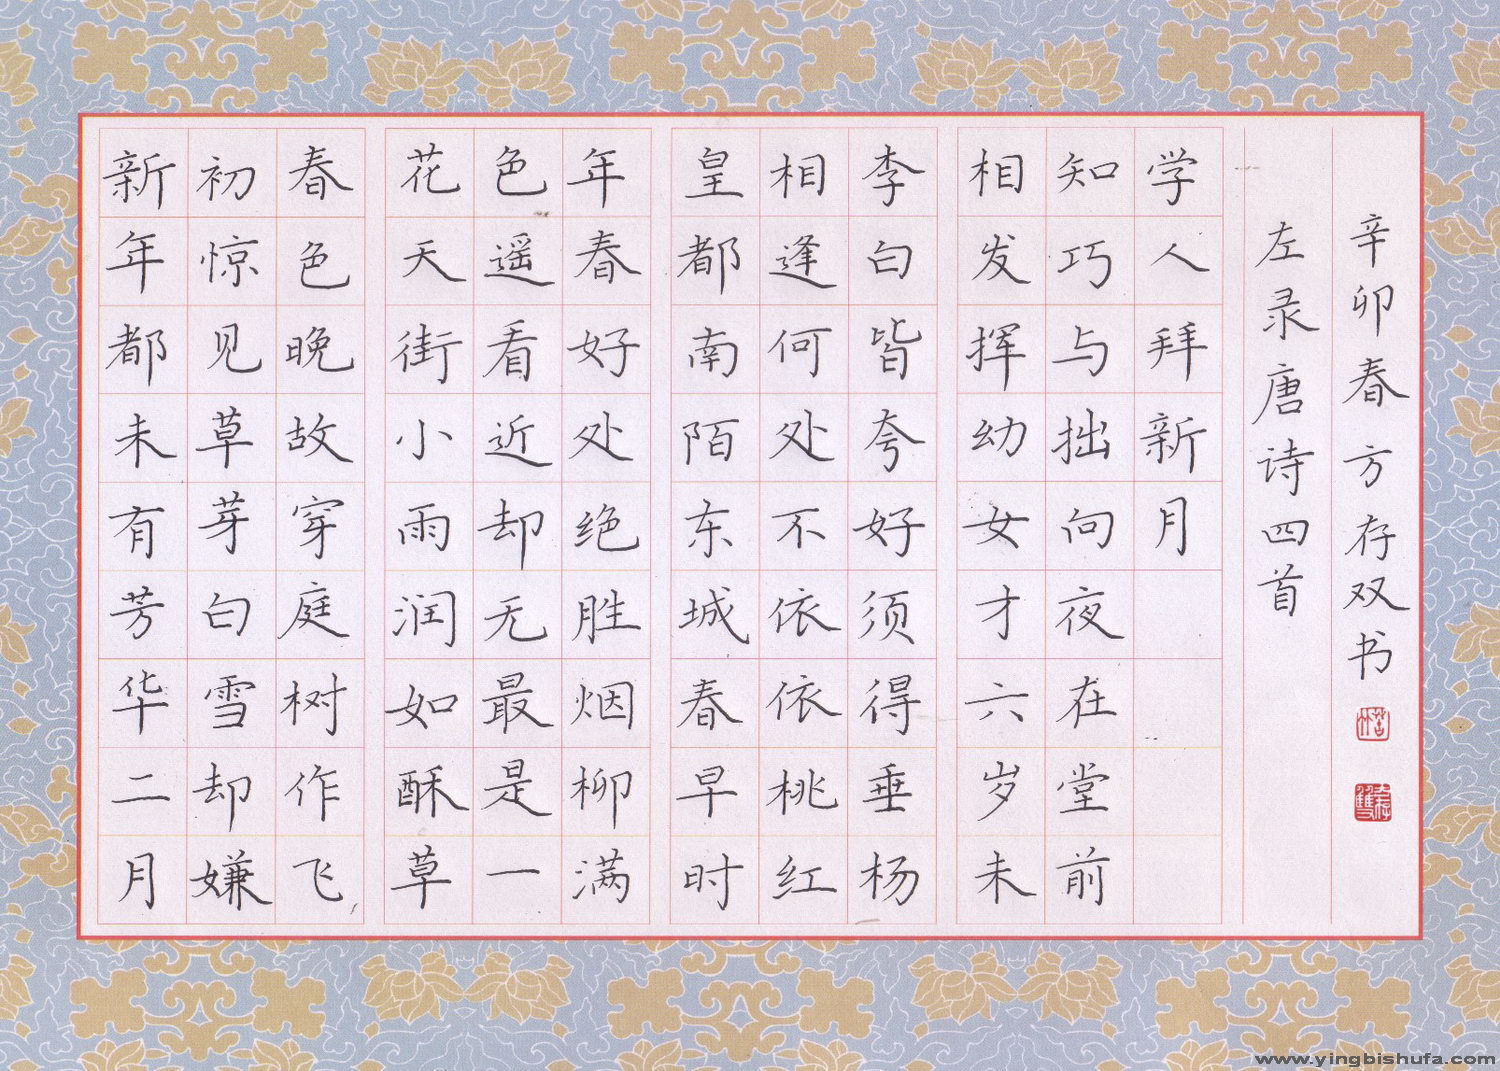 新年都未有芳华二月
初惊见草芽白雪却嫌
春色晚故穿庭树作飞
花天街小雨润如酥草
色遥看近却无最是一
年春好处绝胜烟柳满
皇都南陌东城春早时
相逢何处不依依桃红
李白皆夸好须得垂杨
相发挥幼女才六岁未
知巧与拙向夜在堂前
学人拜新月
左录唐诗四首
辛卯春方存双书
www.yingbishufa.com